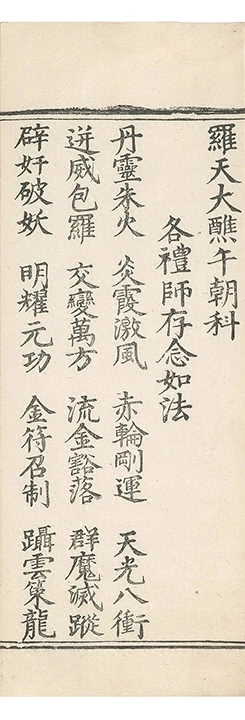 羅天大醮午朝科
各禮師存念如法
丹靈朱火　炎霞激風　赤輪剛運　天光八衝
迸威包羅　交變萬方　流金豁落　群魔滅蹤
辟奸破妖　明耀元功　金符召制　躡雲策龍